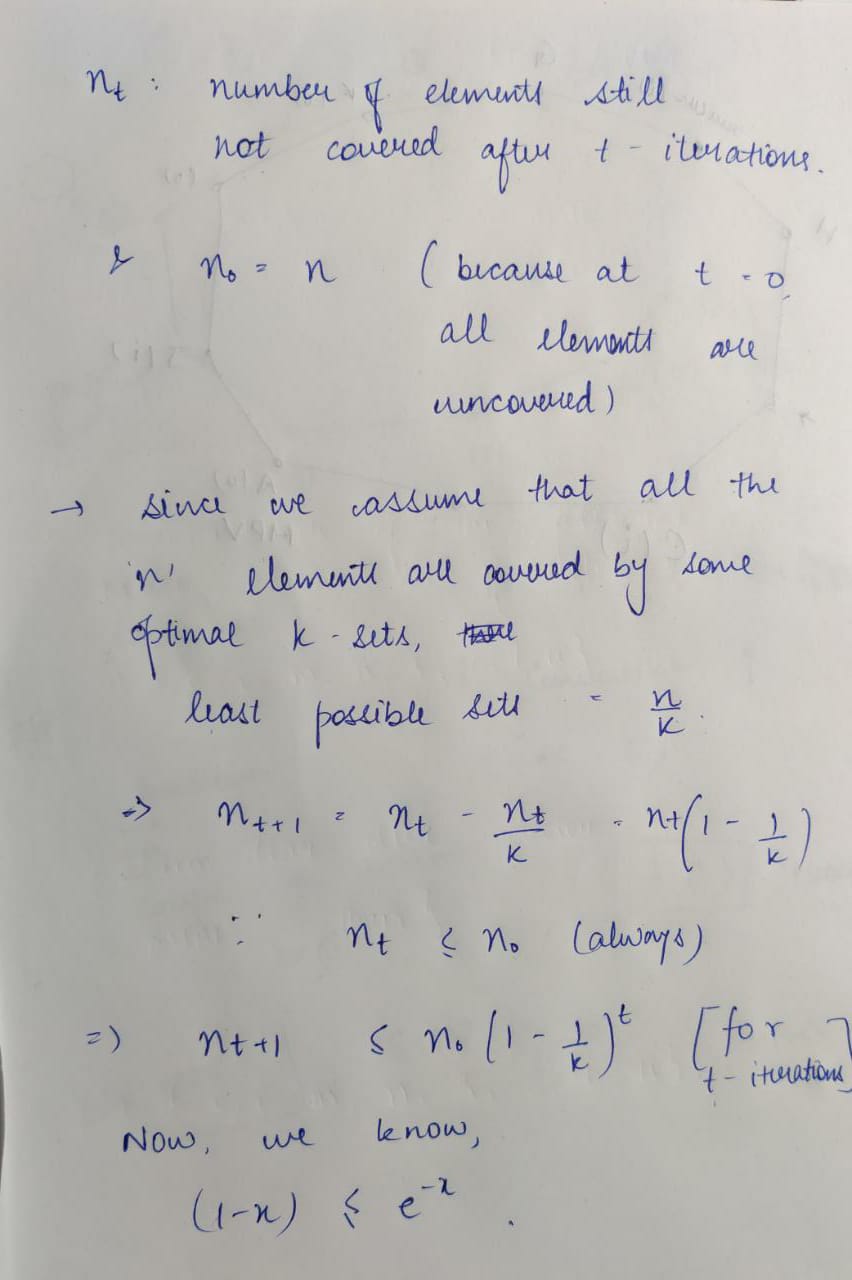 n_t : number of elements still
not covered after t - iterations.
& n_0 = n ( because at t = 0,
all elements are
uncovered )
→ since we assume that all the
'n' elements are covered by some
optimal k - sets,
least possible sets = n/k.
=> n_{t+1} = n_t - n_t/k = n_t(1 - 1/k)
∵ n_t ≤ n_0 (always)
=) n_{t+1} ≤ n_0 (1 - 1/k)^t [for
t - iterations]
Now, we know,
(1-x) ≤ e^{-x}.